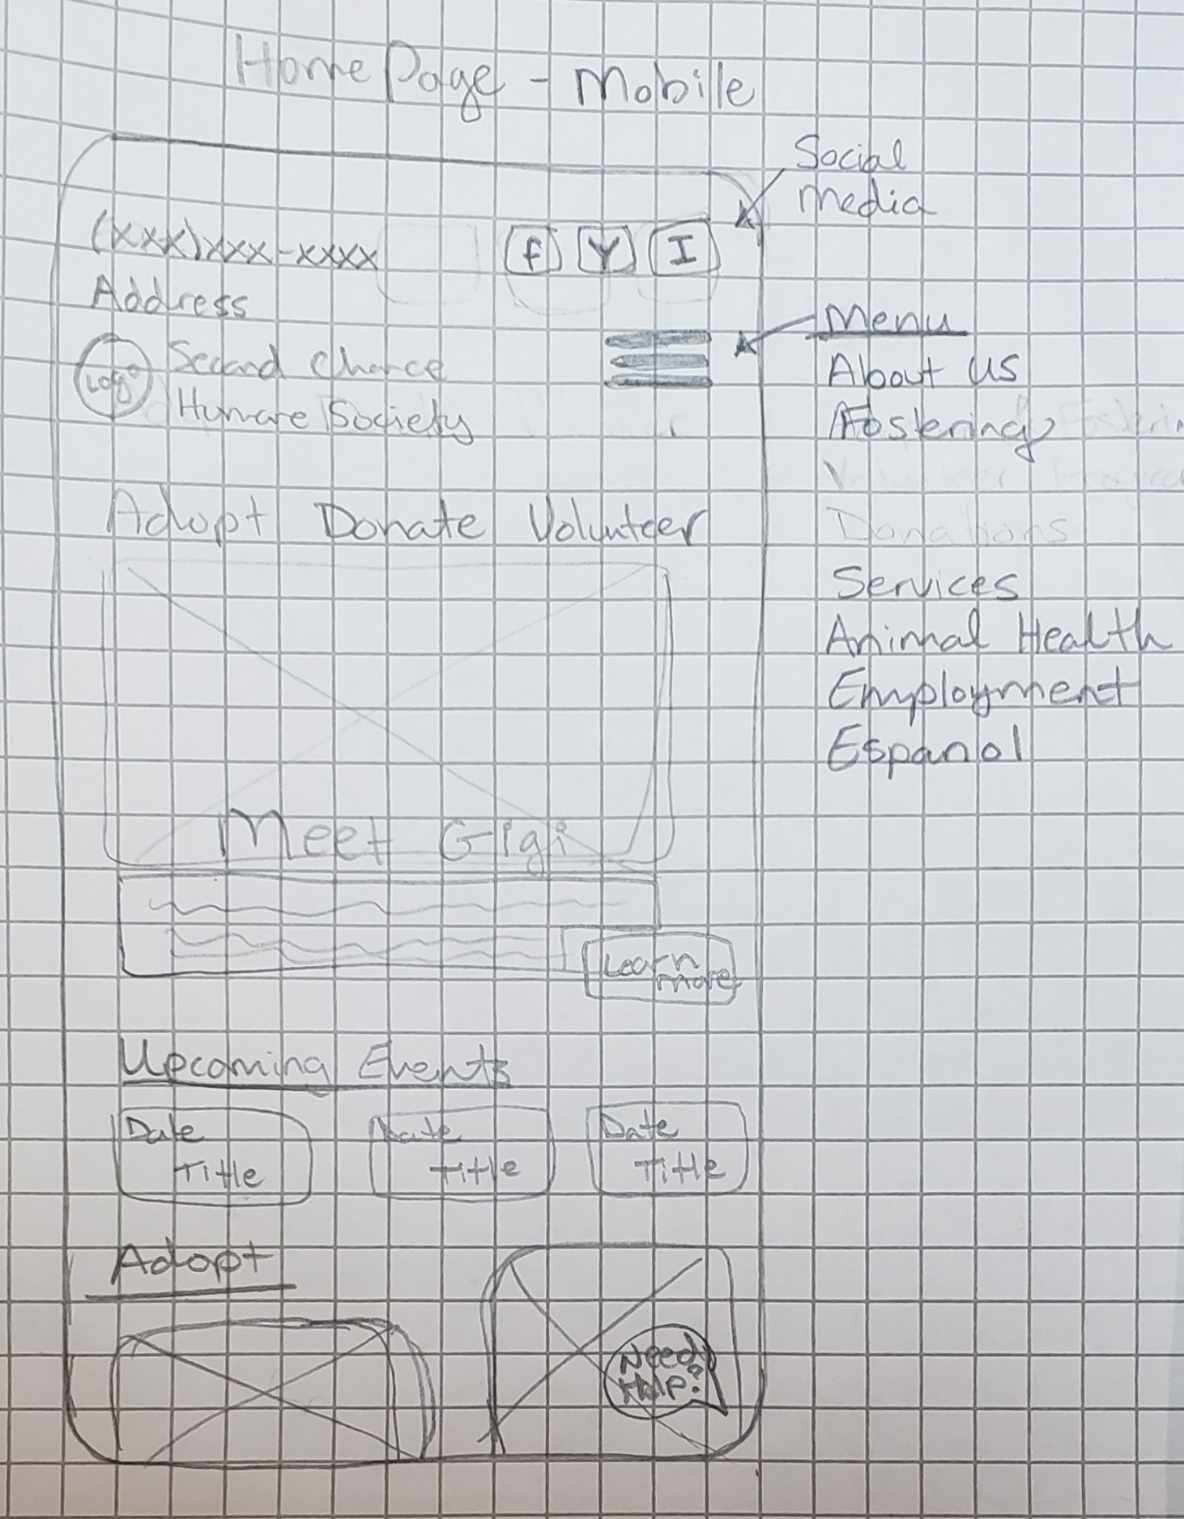 Home Page - Mobile
Social
media
(xxx)xxx-xxxx
f Y I
Address
Menu
Logo
Second Chance
Humane Society
About Us
Fostering
Adopt Donate Volunteer
Donations
Services
Animal Health
Employment
Espanol
Meet Gigi
Learn
more
Upcoming Events
Date
Title
Date
Title
Date
Title
Adopt
Need
Help?